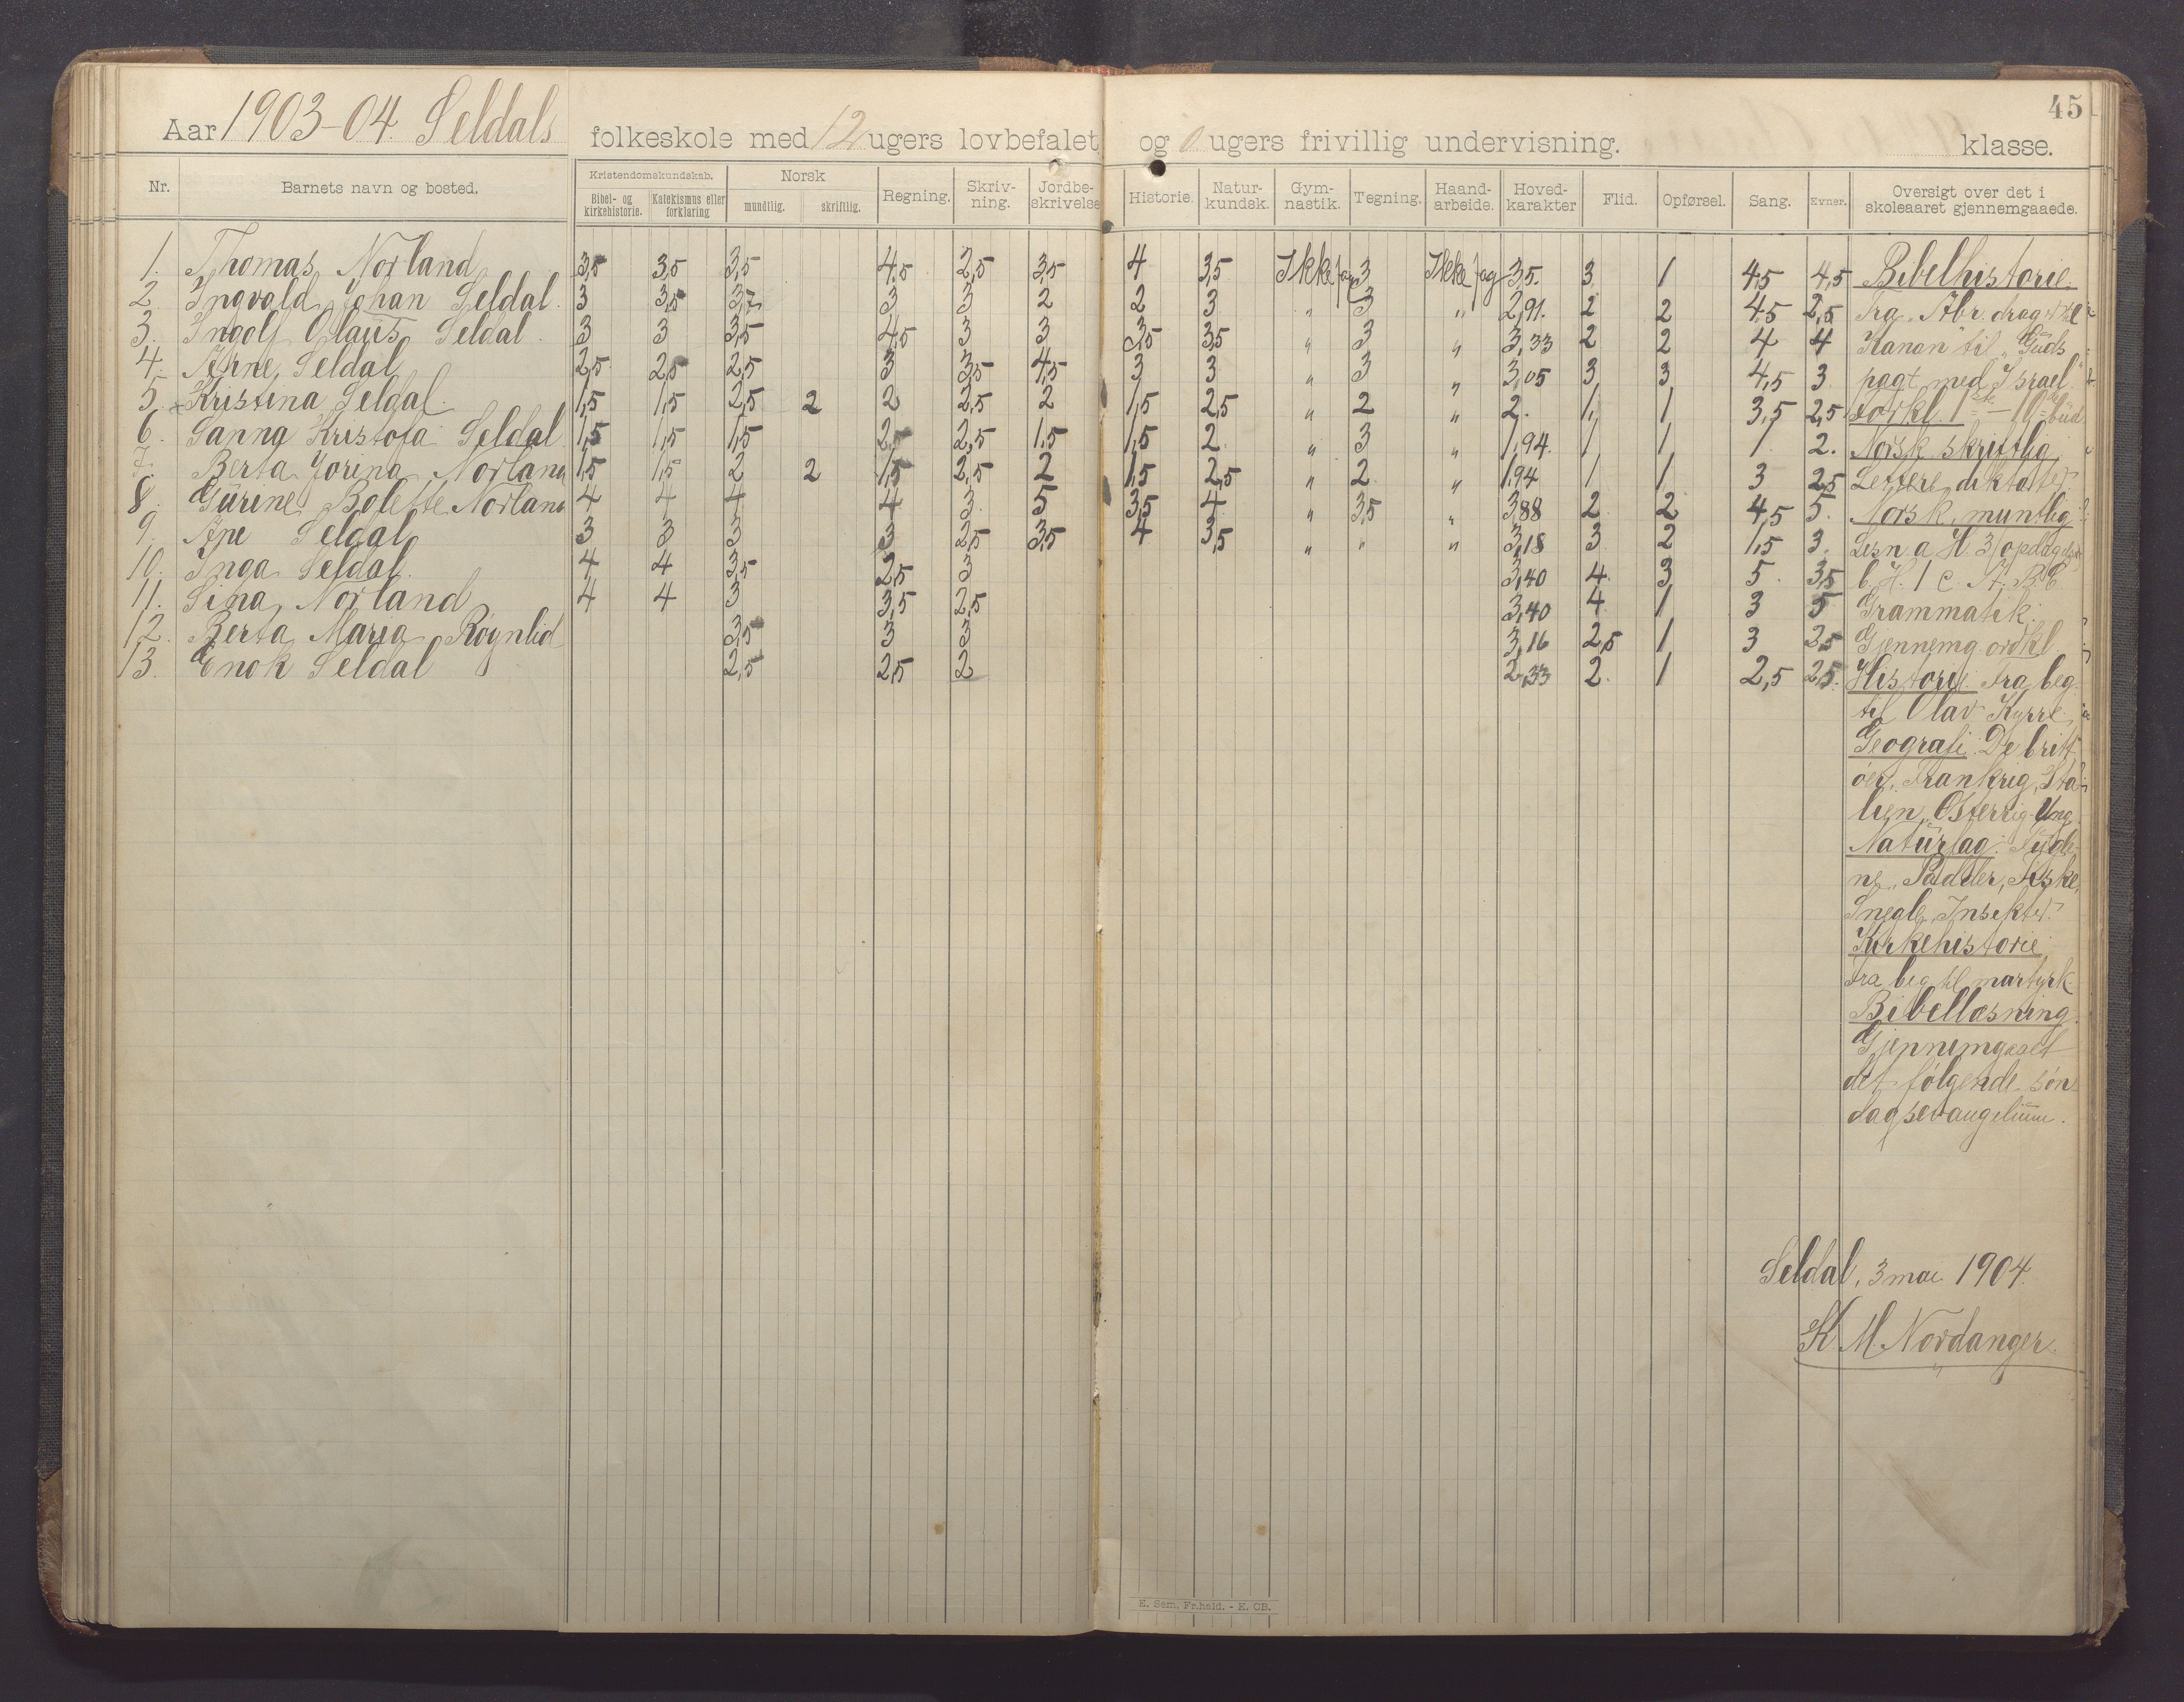 45
Aar 1903-04. Seldals folkeskole med 12 ugers lovbefalet og 0 ugers frivillig undervisning. klasse.
Nr. Barnets navn og bosted. Kristendomskundskab. Bibel- og kirkehistorie. Katekismus eller forklaring Norsk mundtlig. skriftlig. Regning. Skriv-ning. Jordbe-skrivelse Historie. Natur-kundsk. Gym-nastik. Tegning. Haand-arbeide. Hoved-karakter Flid. Opførsel. Sang. Evner. Oversigt over det i skoleaaret gjennemgaaede.
1. Thomas Norland 3,5 3,5 3,5 4,5 2,5 3,5 4 3,5 Ikke fag 3 Ikke fag 3,5. 3 1 4,5 4,5 Bibelhistorie.
2. Ingvald Johan Seldal. 3 3,5 3,7 3 3 2 2 3 " 3 " 2,91. 2 2 4,5 2,5 Fra "Abr. drog til
3. Ingolf Olaus Seldal. 3 3 3,5 4,5 3 3 3,5 3,5 " 3 " 3,33 2 2 4 4 Kanan" til "Guds
4. Arne Seldal 2,5 2,5 2,5 3 3,5 4,5 3 3 " 3 " 3,05 3 3 4,5 3 pagt med Israel."
5. Kristina Seldal. 1,5 1,5 2,5 2 2 2,5 2 1,5 2,5 " 2 " 2. 1, 1 3,5 2,5 Forkl. 1ste - 10de bud
6. Sanna Kristofa Seldal 1,5 1,5 1,5 2,5 2,5 1,5 1,5 2 " 3 " 1,94. 1 1 1 2. Norsk skriftlig
7. Berta Jorina Norland 1,5 1,5 2 2 1,5 2,5 2 1,5 2,5 " 2 " 1,94 1 1 3 2,5 Lettere diktater
8. Gurine Bolette Norland 4 4 4 4 3. 5 3,5 4 " 3,5 " 3,88 2 2 4,5 5. Norsk, muntlig
9. Ane Seldal 3 3 3 3 2,5 3,5 4 3,5 " " " 3,18 3 2 1,5 3. Lesn. a H. 3
10. Inga Seldal. 4 4 3,5 2,5 3 3,40 4. 3 5. 3,5 b. H. 1 c. A.B.C.
11. Sina Norland 4 4 3 3,5 2,5 3,40 4. 1 3 5 Grammatik:
12. Berta Maria Røgnlid 3,5 3 3 3,16 2,5 1 3 3,5 Gjennemg. ordkl.
13. Enok Seldal 2,5 2,5 2 2,33 2. 1 2,5 2,5. Historie. Fra beg.
til Olav Kyrre.
Geografi. De britt.
øer, Frankrig, Ita-
lien, Østerrig-Ung.
Naturfag:
Padder, Fiske,
Snegle, Insekter.
Kirkehistorie
Fra beg. til martyrk.
Bibellæsning.
Gjennemgaaet
det følgende søn-
dagsevangelium.
Seldal, 3 mai 1904.
K. M. Nordanger.
E. Sem, Fr.hald. - E. CB.